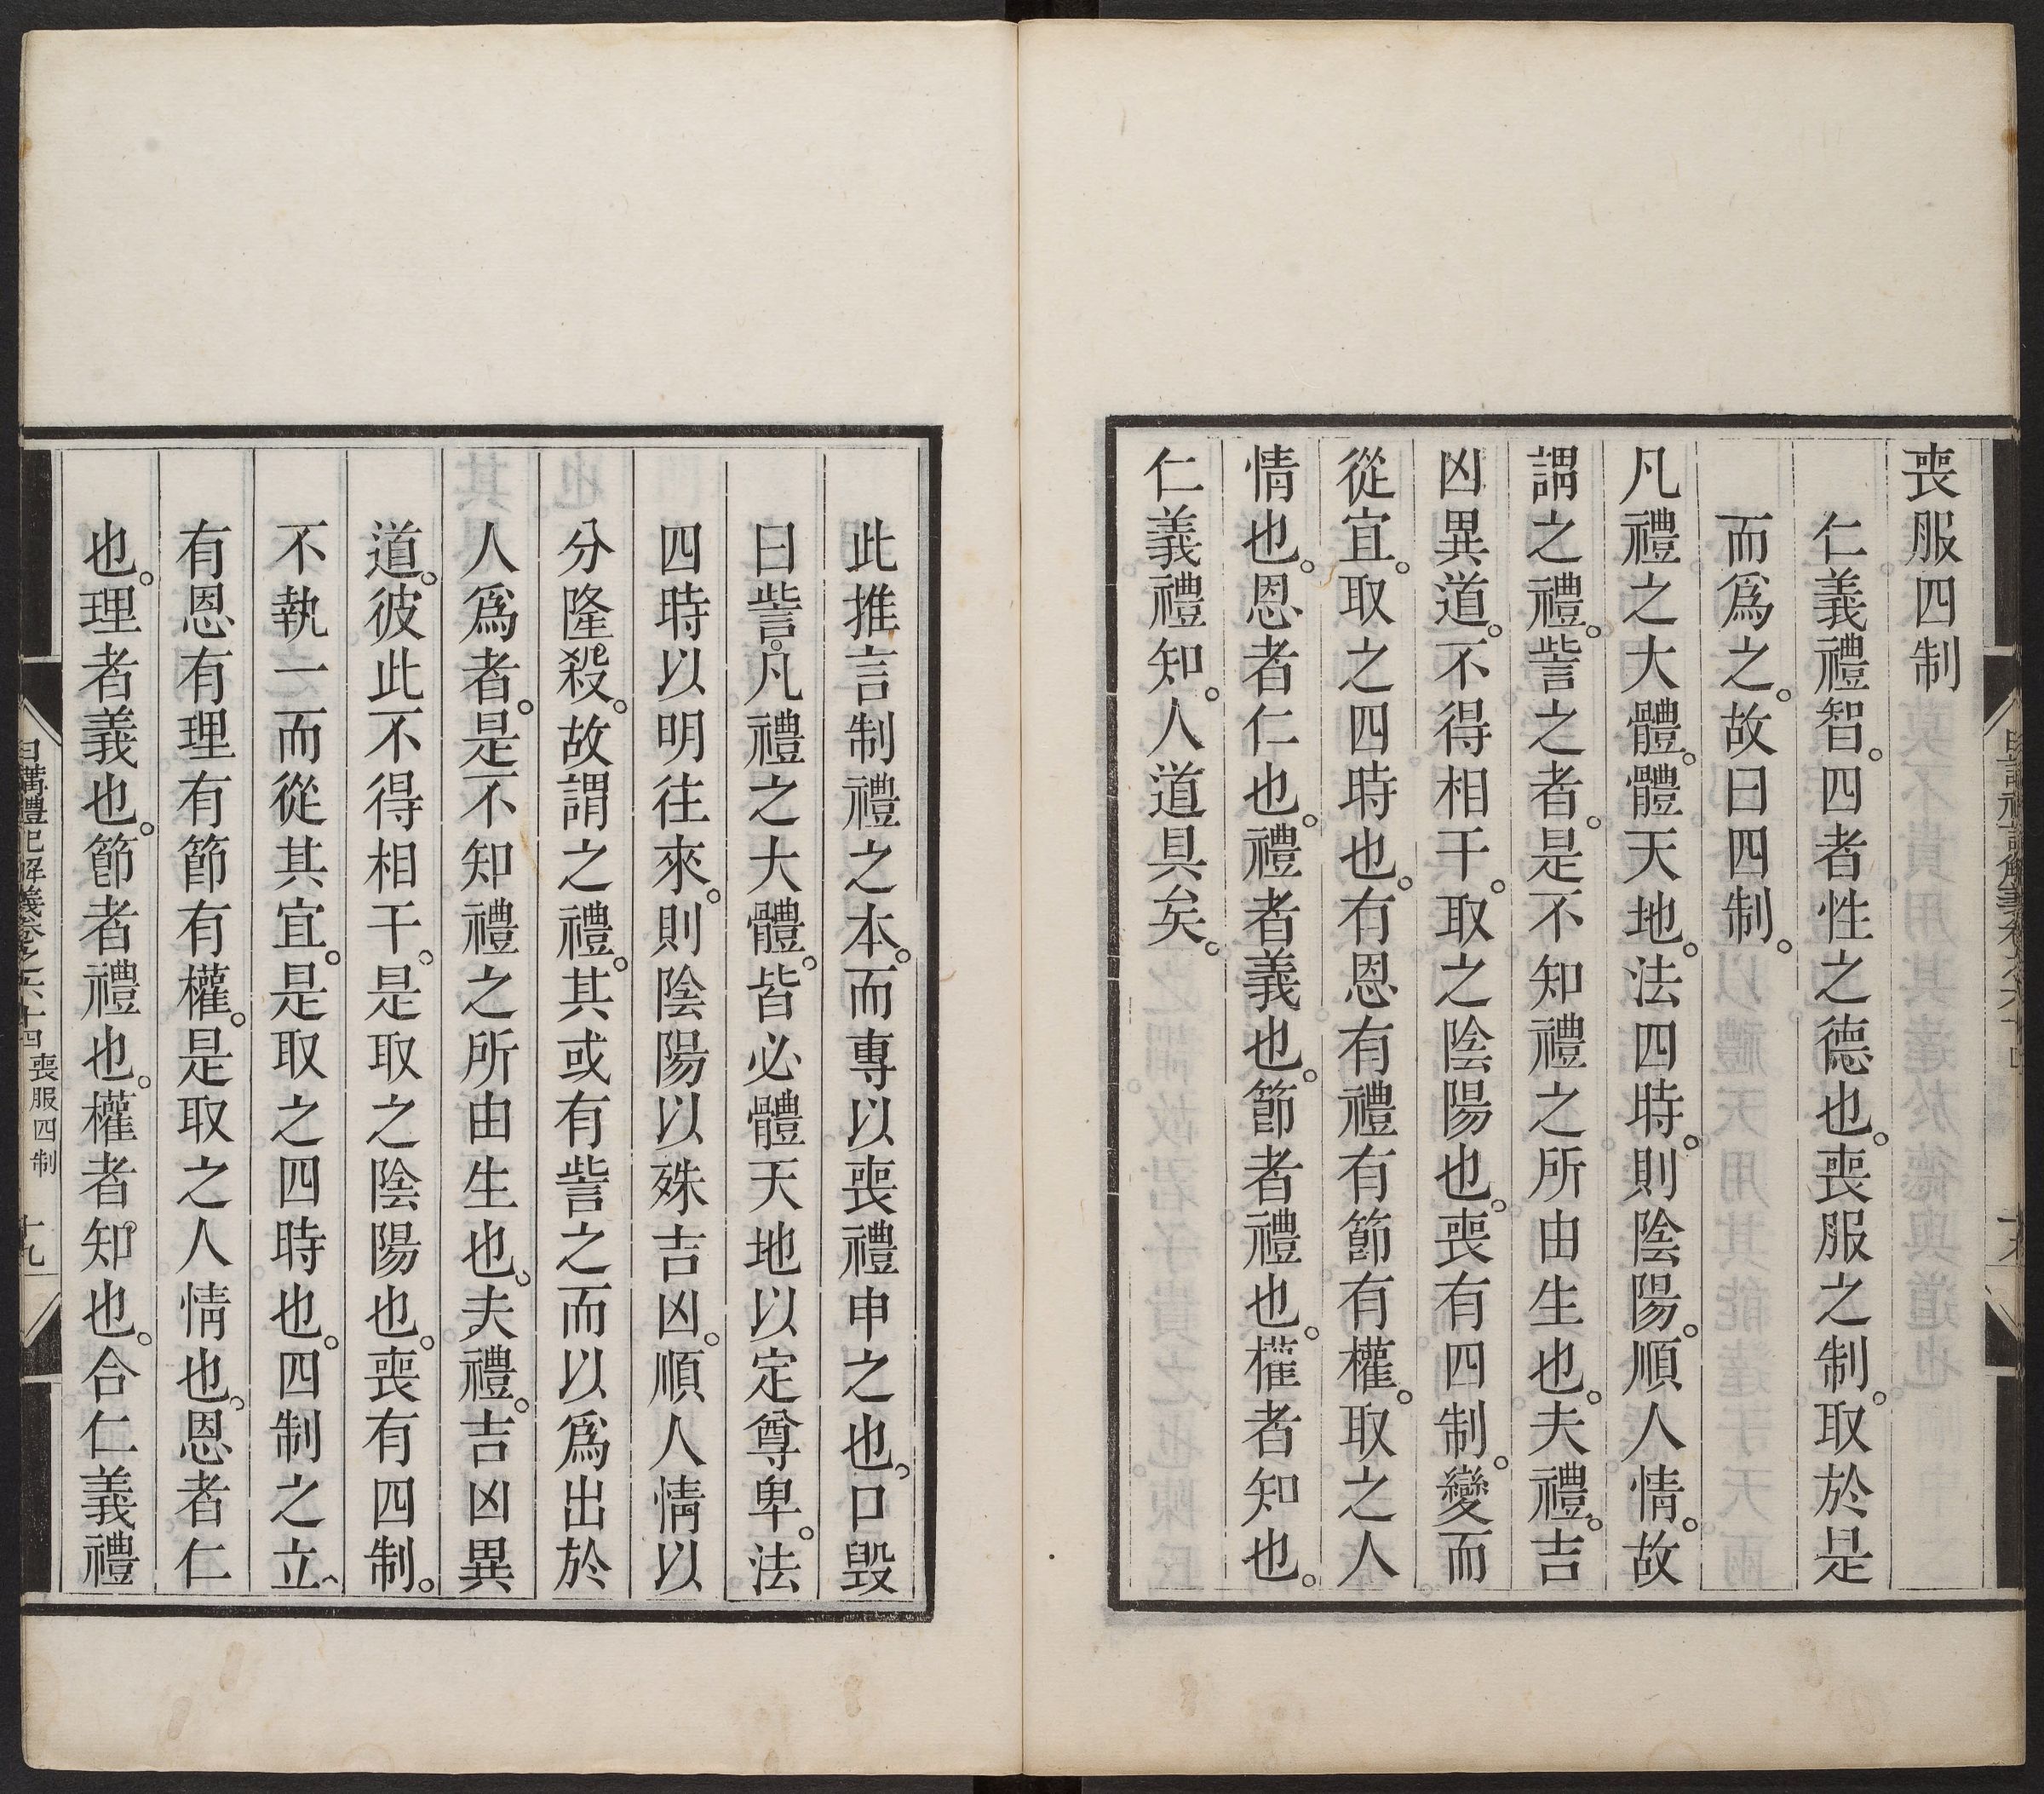 喪服四制
仁義禮智。四者性之德也。喪服之制。取於是
而爲之。故曰四制。
凡禮之大體。體天地。法四時。則陰陽。順人情。故
謂之禮。訾之者。是不知禮之所由生也。夫禮。吉
凶異道。不得相干。取之陰陽也。喪有四制。變而
從宜。取之四時也。有恩有禮有節有權。取之人
情也。恩者仁也。禮者義也。節者禮也。權者知也。
仁義禮知。人道具矣。
此推言制禮之本。而專以喪禮申之也。口毀
曰訾。凡禮之大體。皆必體天地以定尊卑。法
四時以明往來。則陰陽以殊吉凶。順人情以
分隆殺。故謂之禮。其或有訾之而以爲出於
人爲者。是不知禮之所由生也。夫禮。吉凶異
道。彼此不得相干。是取之陰陽也。喪有四制。
不執一而從其宜。是取之四時也。四制之立、
有恩有理有節有權。是取之人情也。恩者仁
也。理者義也。節者禮也。權者知也。合仁義禮
日講禮記解義卷之六十四 喪服四制 十九